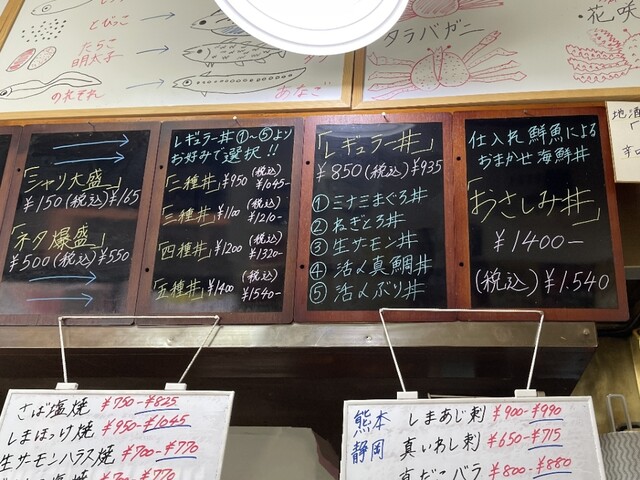 とびっこ
たらこ
明太子
のれそれ
あなご
タラバガニ
花咲
地酒
シャリ大盛」
¥150(税込)¥165
「ネタ爆盛」
¥500(税込)¥550
レギュラー丼①〜⑤より
お好みで選択!!
「二種丼」¥950 (税込)¥1045-
「三種丼」¥1100 (税込)¥1210-
「四種丼」¥1200 (税込)¥1320-
「五種丼」¥1400 (税込)¥1540-
「レギュラー丼」
¥850(税込)¥935
①ミナミまぐろ丼
②ねぎとろ丼
③生サモン丼
④活〆真鯛丼
⑤活〆ぶり丼
仕入れ鮮魚による
おまかせ海鮮丼
「おさしみ丼」
¥1400-
(税込)¥1.540
さば塩焼 ¥750-¥825
しまほっけ焼 ¥950-¥1045
生サーモンハラス焼 ¥700-¥770
¥700-¥770
熊本 しまあじ刺 ¥900-¥990
静岡 真いわし刺 ¥650-¥715
真だこバラ ¥800-¥880